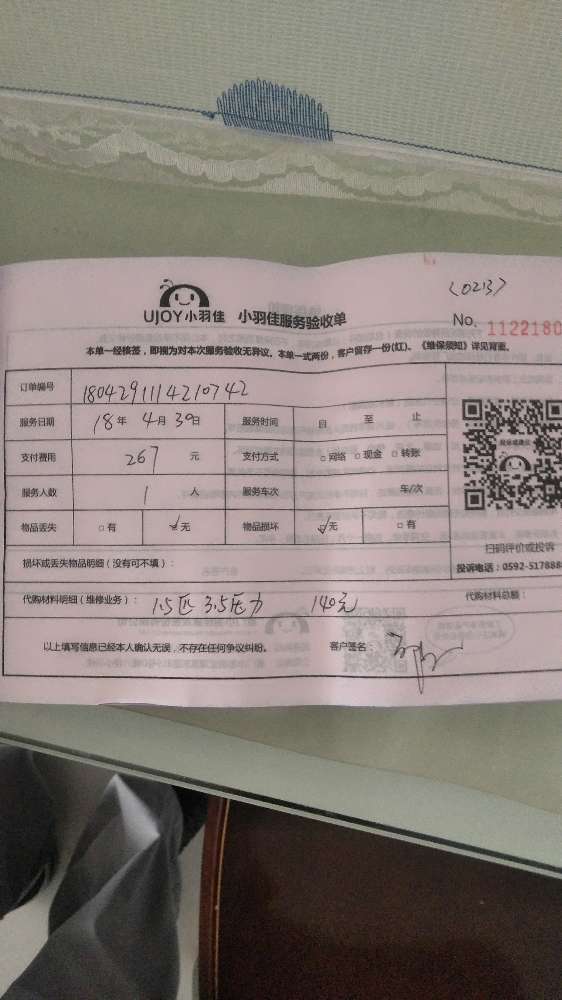 〈0213〉
UJOY小羽佳 小羽佳服务验收单
No. 1122180
本单一经核签，即视为对本次服务验收无异议。本单一式两份，客户留存一份(红)。《维保须知》详见背面。
订单编号 1804291114210742
服务日期 18年 4月 30日 服务时间 自 至 止
支付费用 267 元 支付方式 □网络 □现金 □转账
服务人数 1 人 服务车次 车/次
物品丢失 □有 ☑无 物品损坏 ☑无 □有
扫码评价或投诉
损坏或丢失物品明细（没有可不填）：
投诉电话：0592-517888
代购材料明细（维修业务）： 1.5匹 3.5压力 140元 代购材料总额：
以上填写信息已经本人确认无误，不存在任何争议纠纷。 客户签名：